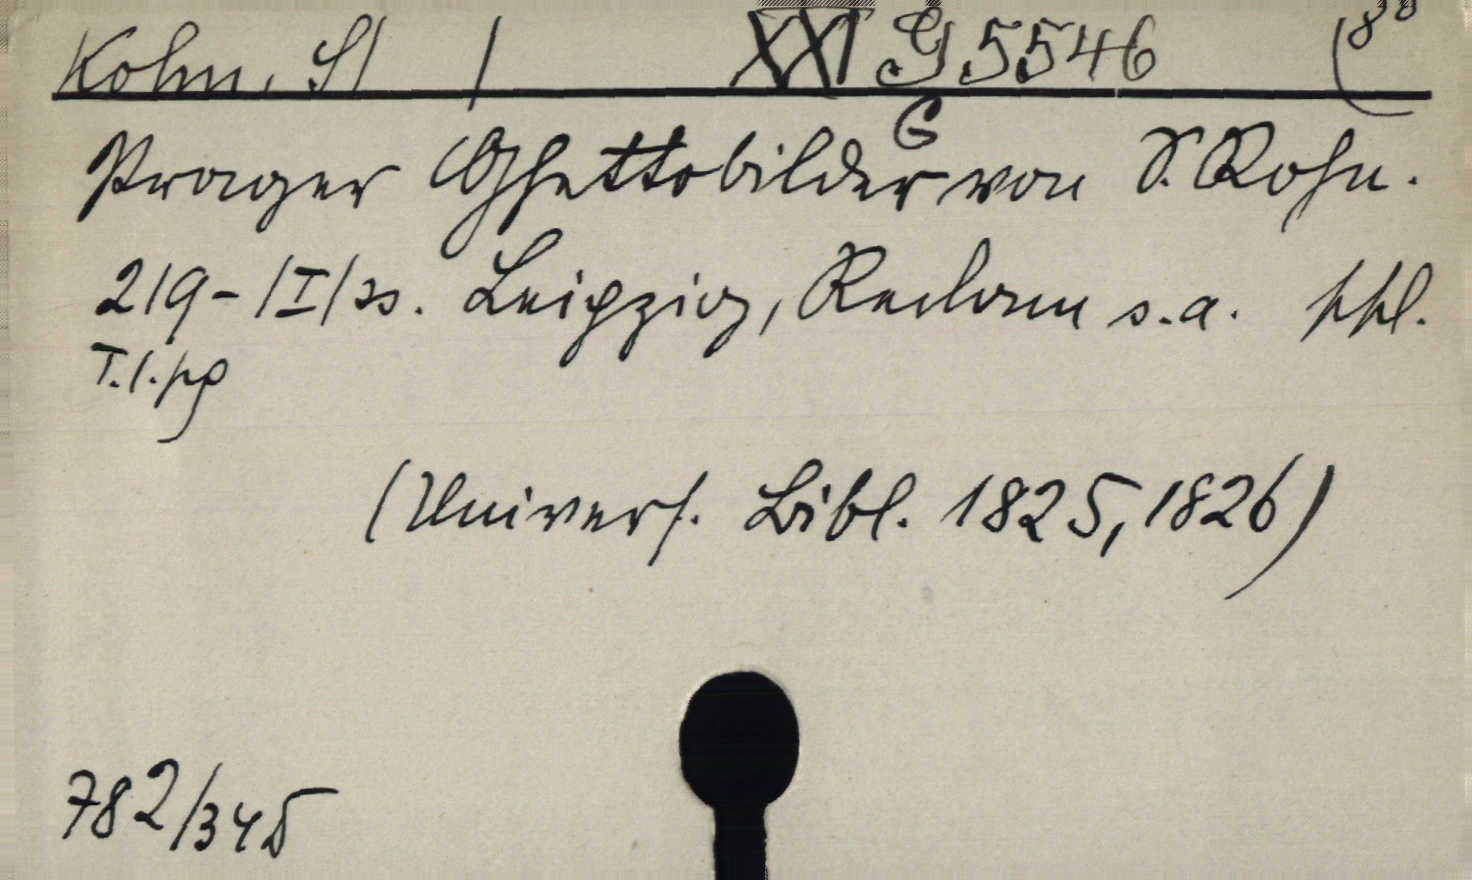 Kohn, S/ / XXI G 5546 (8°
G
Prager Ghettobilder von S. Kohn.
219-/I/ss. Leipzig, Reclam s.a. ppl.
T.l.pg
(Univers. Bibl. 1825, 1826)
782/345